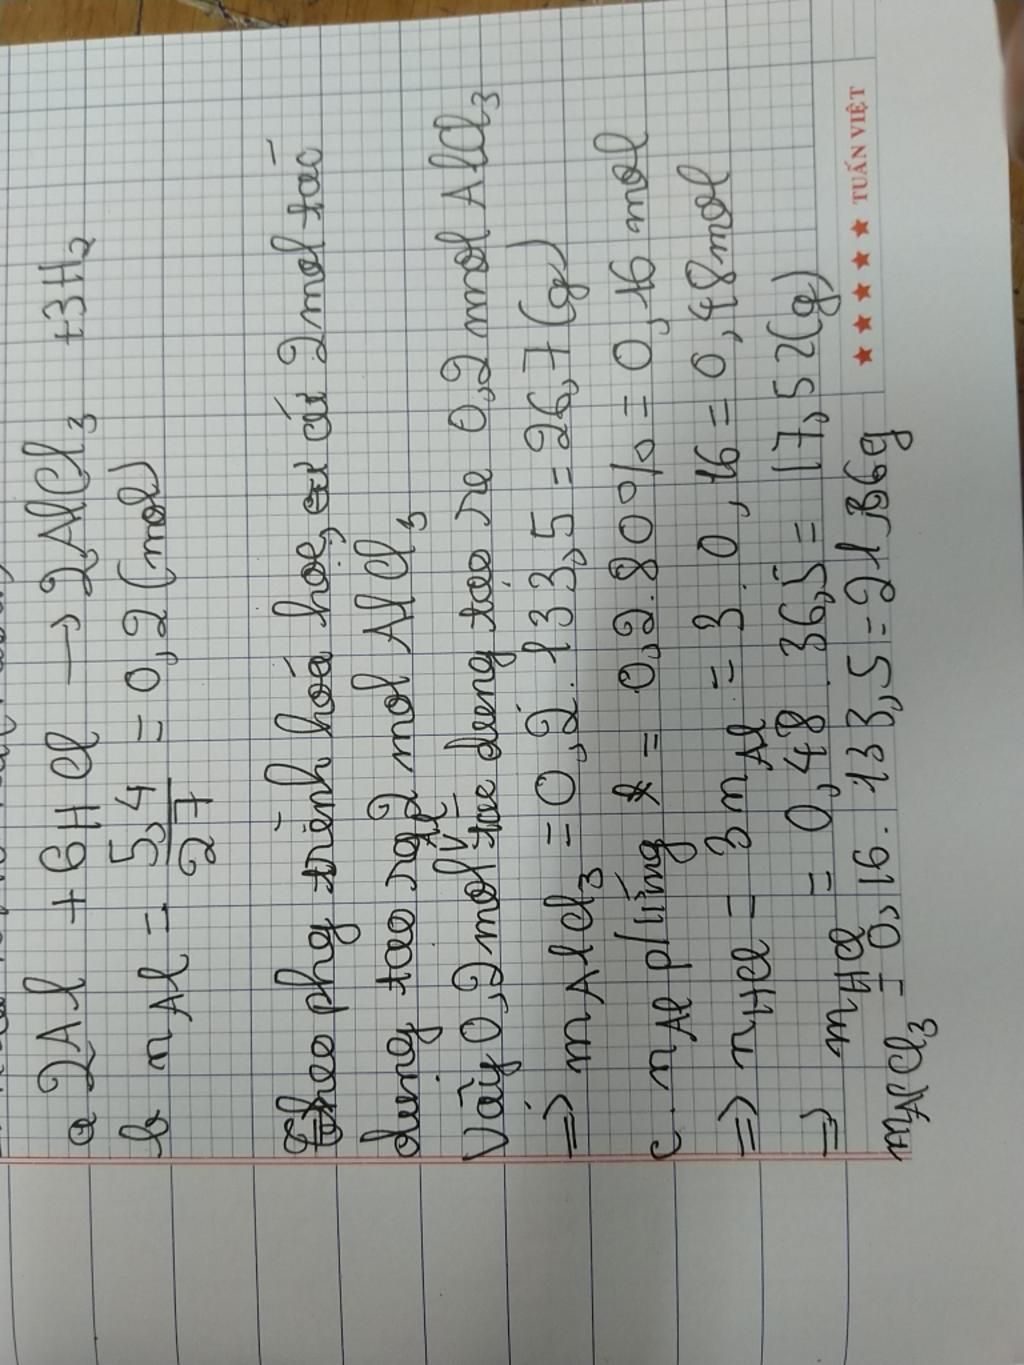 a 2Al + 6HCl → 2AlCl₃ + 3H₂
b nAl = 5,4/27 = 0,2 (mol)
Theo phg trình hoá học, cứ 2 mol tác
dụng tạo ra 2 mol AlCl₃
Vậy 0,2 mol Al tác dụng tạo ra 0,2 mol AlCl₃
=> mAlCl₃ = 0,2. 133,5 = 26,7 (g)
c. nAl p/ứng = 0,2. 80% = 0,16 mol
=> nHCl = 3nAl = 3. 0,16 = 0,48 mol
=> mHCl = 0,48. 36,5 = 17,52 (g)
mAlCl₃ = 0,16. 133,5 = 21,36g
★ ★ ★ ★ ★ TUẤN VIỆT